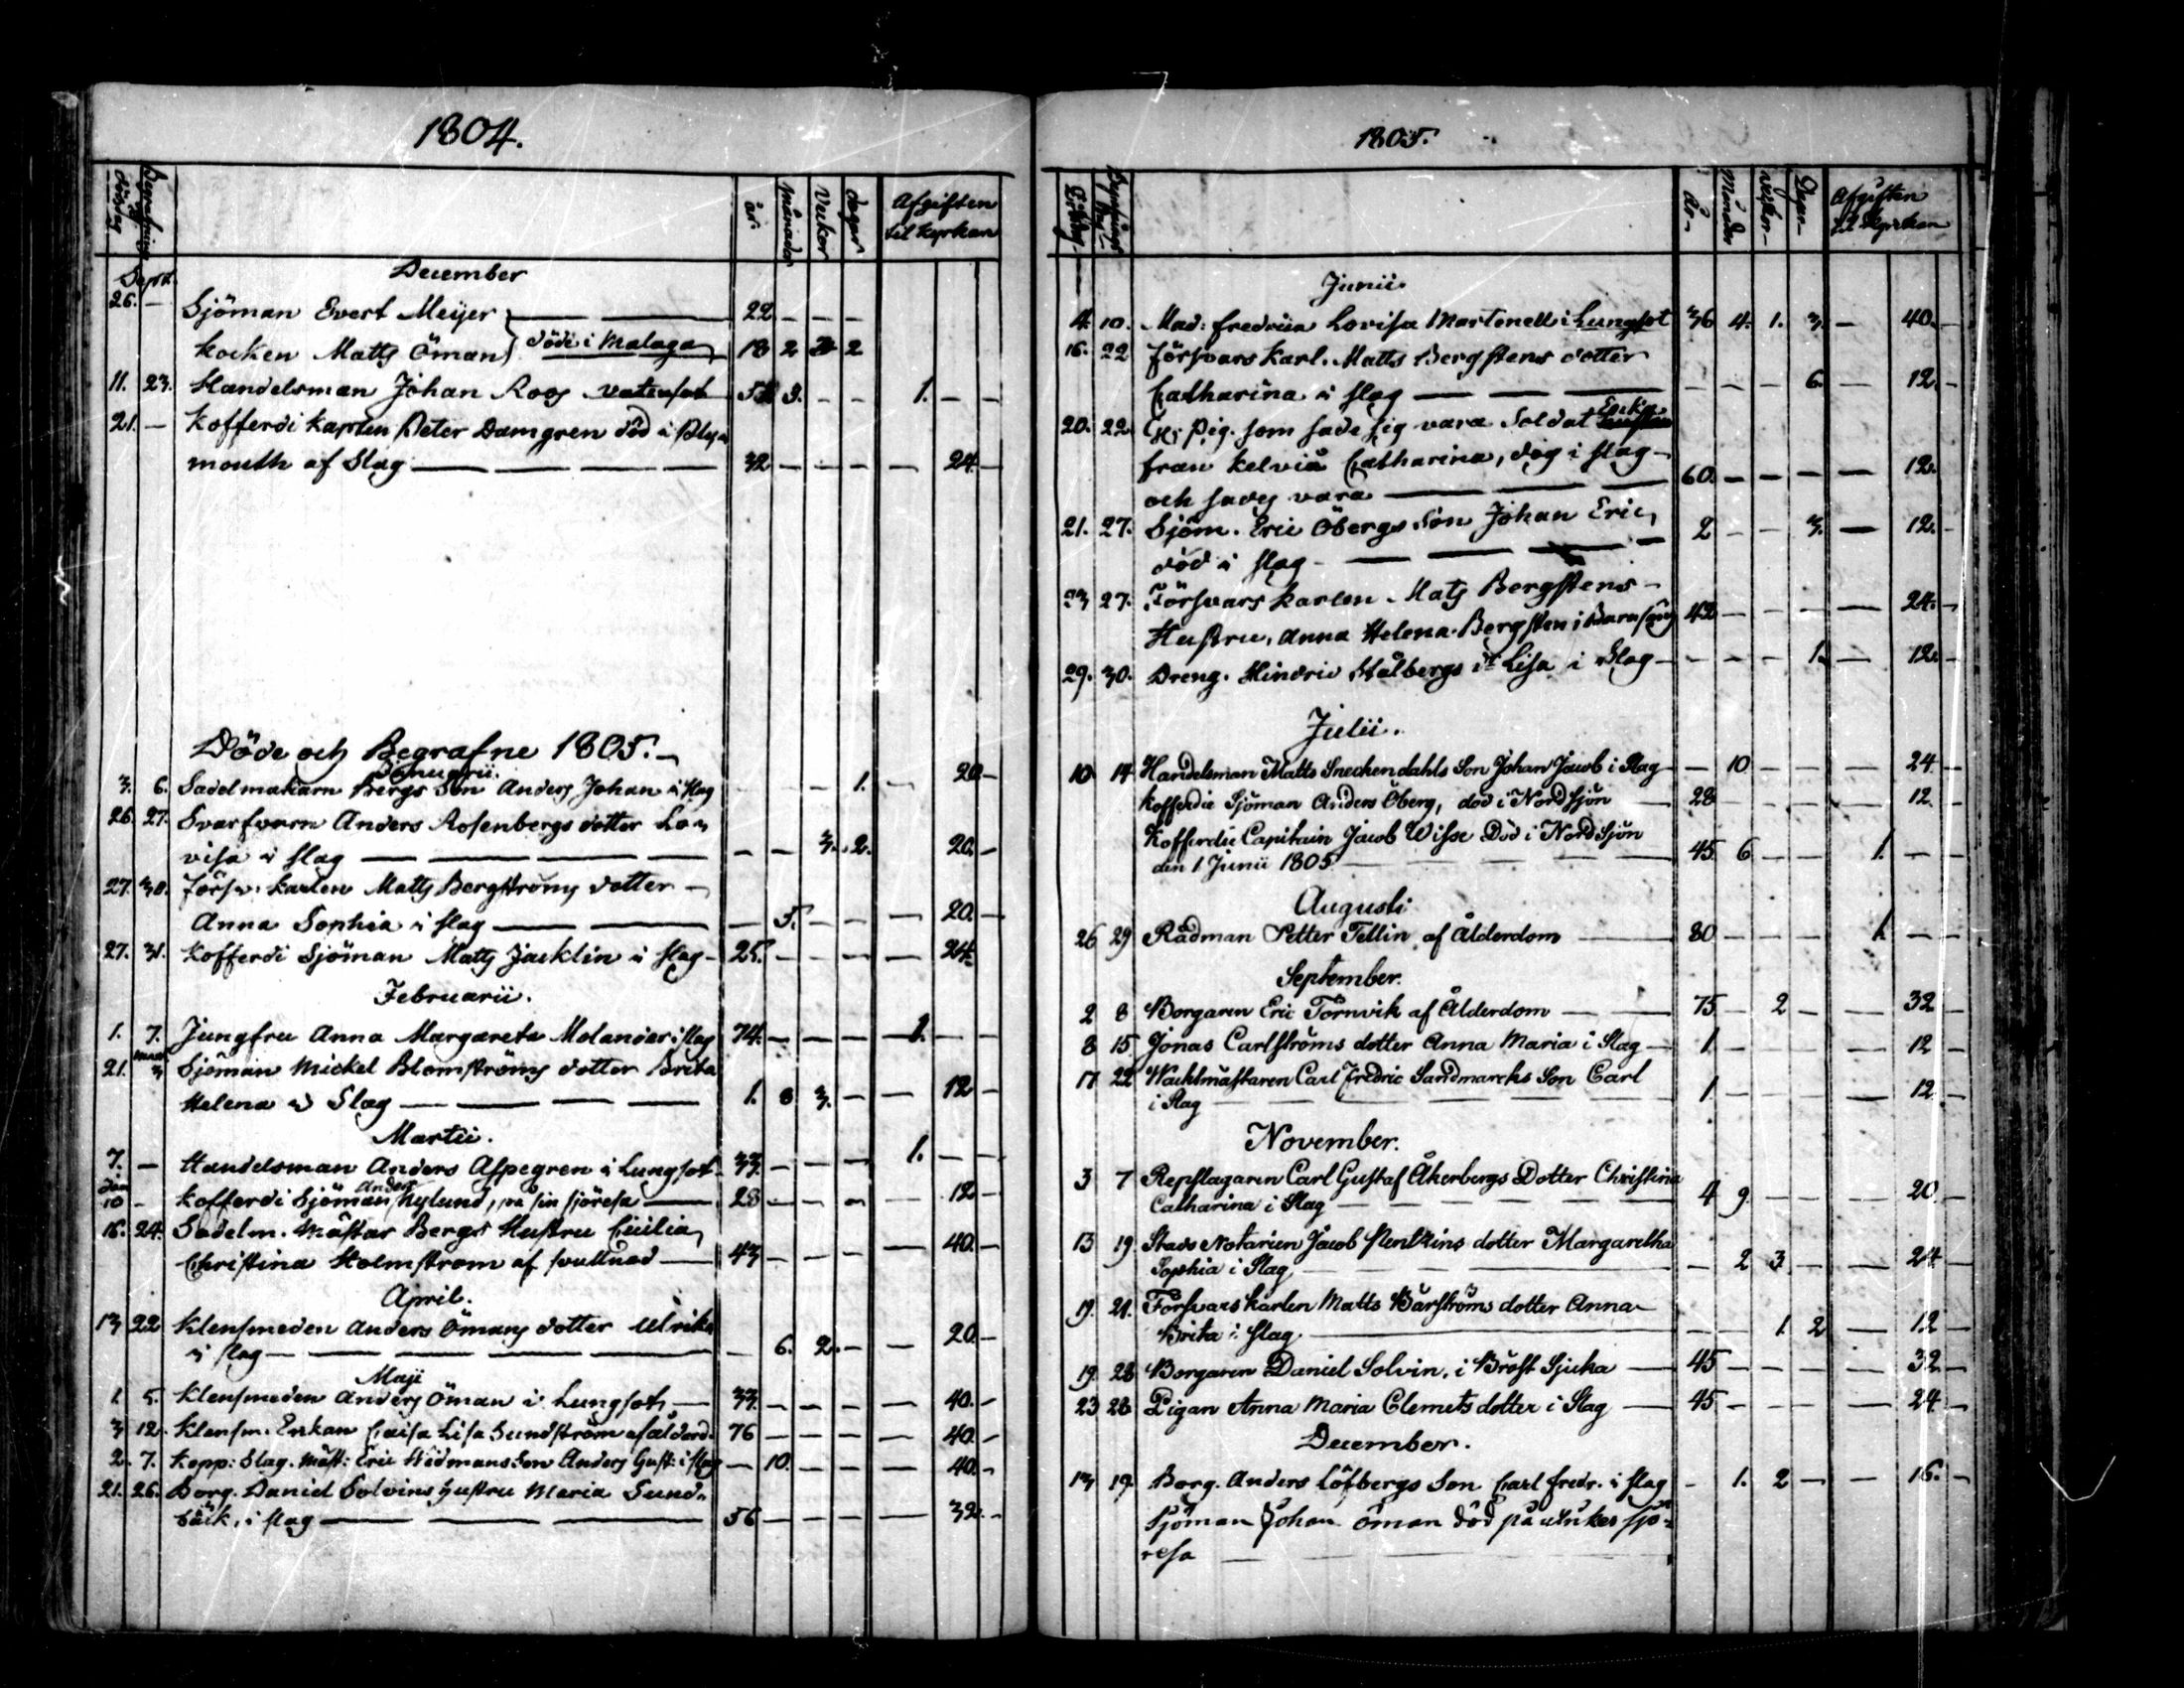 1804.
dödsdag Begrafnings år. månader Veckor dagar Afgiften til kyrkan
December
Septr.
26. — Sjöman Evert Meijer 22 — — —
kocken Matts Öman döde i Malaga 18 2 3 2
11. 23. Handelsman Johan Roos vatusot 3. — — 1. — —
21. — Kofferdi kapten Peter Damgren död i Plys
mouth af Slag 32 — — — — 24. —
Döde och Begrafne 1805.
Januarii.
3. 6. Sadelmakarn Bergs Son Anders Johan i slag — — — 1. — 20 —
26. 27. Svarfvarn Anders Rosenbergs dotter Lo-
visa i slag — — 3. 2. 20. —
27. 30. Försv. karlen Matts Bergströms dotter
Anna Sophia i slag — 5. — — — 20. —
27. 31. Kofferdi Sjöman Matts Jacklin i slag 25. — — — — 24.
Februarii.
1. 7. Jungfru Anna Margareta Molander i slag 74. — — — 1. — —
21. Mart 3 Sjöman Mickel Blomströms dotter Brita
Helena i Slag 1. 8 3. — — 12 —
Martii.
7. — Handelsman Anders Aspegren i Lungsot 33. — — — 1. — —
Jan 10 — Kofferdi Sjöman Anders Nylund, på sin sjöresa 28 — — — — 12 —
16. 24. Sadelm. Mästar Bergs Hustru Cicilia
Christina Holmstrom af svullnad 43 — — — — 40. —
April.
13 22 Klensmeden Anders Ömans dotter Ulrika
i slag — 6. 2. — — 20. —
Maji
1. 5. Klensmeden Anders Öman i Lungsot 33. — — — — 40. —
3 12. Klensm. Enkan Caisa Lisa Sundström af ålderd. 76 — — — — 40. —
2. 7. Kopp: Slag. Mäst: Eric Widmans Son Anders Gust: i slag — 10. — — — 40. —
21. 26. Borg. Daniel Solvins hustru Maria Sund-
bäck, i slag 56 — — — — 32. —
1805.
Begrafnings År Månader veckor Dagar Afgiften til Kyrkan
Junii
4. 10. Mad: fredrica Lovisa Martenell i Lungsot 36 4. 1. 3. — 40. —
16. 22 försvars karl. Matts Bergstens dotter
Catharina i slag — — — 6. — 12. —
20. 22 En pig. som sade sig vara Soldat Enka
fran kelviå Catharina, dog i slag
och sades vara 60. — — — — 12.
21. 27. Sjöm. Eric Öbergs Son Johan Eric,
död i slag 2 — — 3. — 12. —
23 27. Försvars karlen Mats Bergstens
Hustru, Anna Helena Bergsten i Barnsäng 42 — — — — 24. —
29. 30. Dreng. Hindric Stålbergs dr Lisa i Slag — — — 1. — 12. —
Julii.
10 14 Handelsman Matts Sneckendahls Son Johan Jacob i Slag — 10 — — — 24 —
Kofferdie Sjöman Anders Öberg, död i Nordsjön 28 — — — — 12. —
Kofferdie Capitain Jacob Wisse Död i Nordsjön
den 1 Junii 1805 45 6 — — 1. — —
Augusti
26 29 Rådman Petter Tellin af Ålderdom 80 — — — 1. — —
September.
2 8 Borgaren Eric Törnvik af Ålderdom 75 — 2 — — 32 —
8 15 Jonas Carlströms dotter Anna Maria i Slag 1. — — — — 12 —
17 22 Wachtmästaren Carl Fredric Sandmarcks Son Carl
i Slag 1. — — — — 12. —
November.
3 7 Repslagaren Carl Gustaf Åkerbergs Dotter Christina
Catharina i Slag 4 9. — — — 20. —
13 19. Stads Notarien Jacob Stenkins dotter Margaretha
Sophia i Slag — 2 3. — — 24 —
19. 21. Försvarskarlen Matts Bärströms dotter Anna
Brita i slag — — 1. 2 — 12 —
19. 28 Borgaren Daniel Solvin, i Bröst Sjuka 45 — — — — 32 —
23 28 Pigan Anna Maria Clemets dotter i Slag 45 — — — — 24. —
December.
13 19 Borg. Anders Löfbergs Son Carl fredr. i slag — 1. 2 — — 16. —
Sjöman Johan Öman död på utrikes sjö-
resa